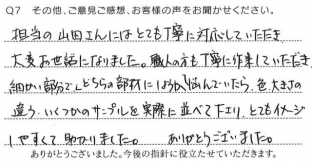 Q7 その他、ご意見ご感想、お客様の声をお聞かせください。
担当の山田さんにはとても丁寧に対応していただき
大変お世話になりました。職人の方も丁寧に作業していただき
細かい部分でどちらの部材にしようか悩んでいたら、色、大きさの
違う、いくつかのサンプルを実際に並べて下さり、とてもイメージ
しやすくて助かりました。 ありがとうございました。
ありがとうございました。今後の指針に役立たせていただきます。